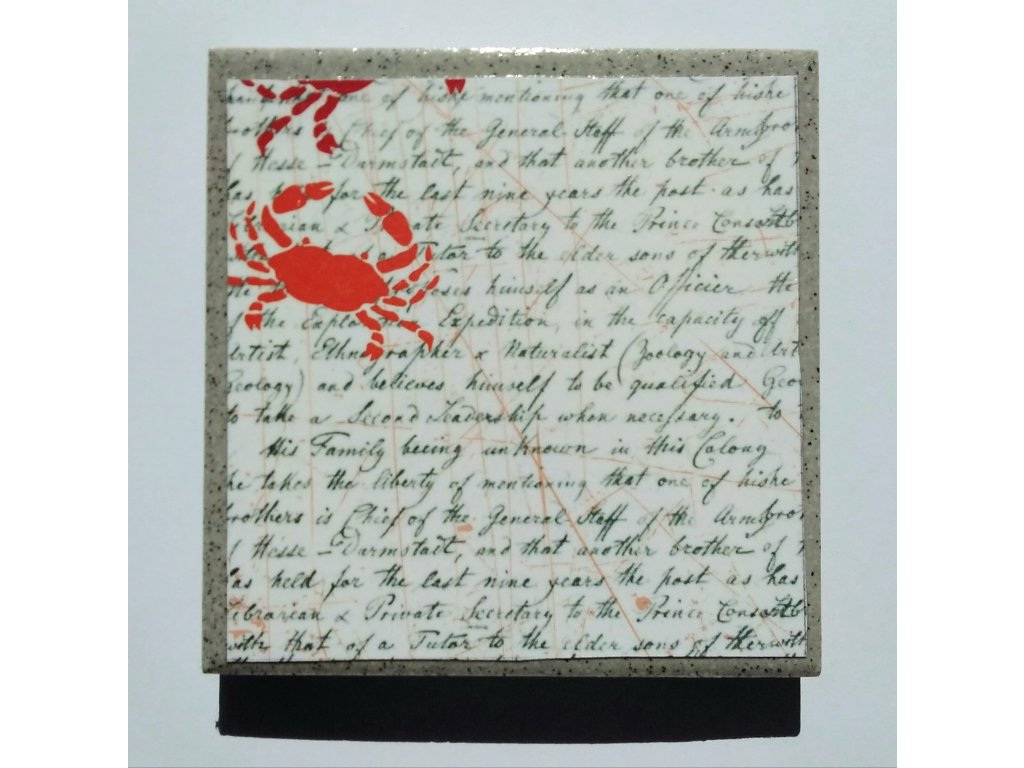 one of hishe mentioning that one of hishe
brothers Chief of the General Staff of the Army bro
Hesse – Darmstadt, and that another brother of
has for the last nine years the post as has
Librarian & Private Secretary to the Prince Consort
a Tutor to the elder sons of the with
himself as an Officier
of the Exploration Expedition, in the capacity of
Artist, Ethnographer & Naturalist (Zoology and Art
Geology) and believes himself to be qualified Geo
to take a Second Leadership when necessary. to
His Family beeing unknown in this Colony
he takes the liberty of mentioning that one of hishe
brothers is Chief of the General Staff of the Army bro
Hesse – Darmstadt, and that another brother of
has held for the last nine years the post as has
Librarian & Private Secretary to the Prince Consort
with that of a Tutor to the elder sons of the with